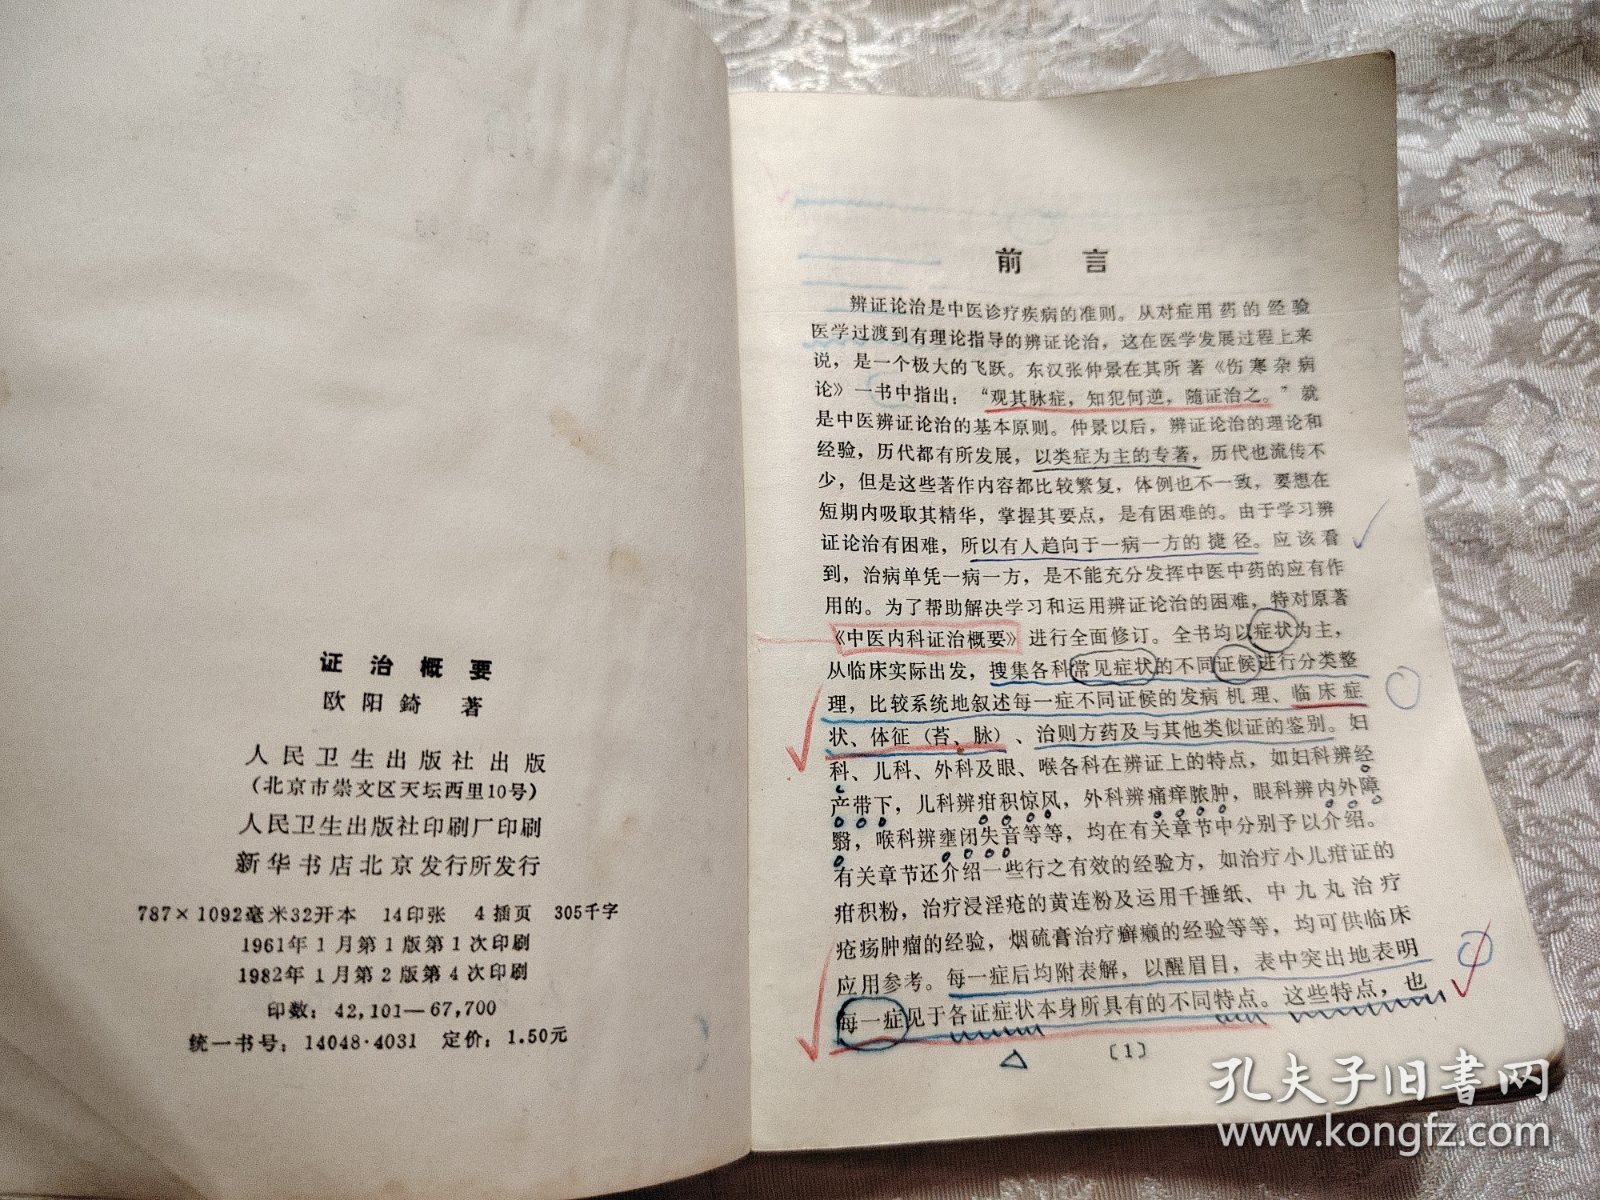 证治概要
欧阳錡 著
人民卫生出版社出版
(北京市崇文区天坛西里10号)
人民卫生出版社印刷厂印刷
新华书店北京发行所发行
787×1092毫米32开本 14印张 4插页 305千字
1961年1月第1版第1次印刷
1982年1月第2版第4次印刷
印数：42,101—67,700
统一书号：14048·4031 定价：1.50元
前言
辨证论治是中医诊疗疾病的准则。从对症用药的经验
医学过渡到有理论指导的辨证论治，这在医学发展过程上来
说，是一个极大的飞跃。东汉张仲景在其所著《伤寒杂病
论》一书中指出：“观其脉症，知犯何逆，随证治之。”就
是中医辨证论治的基本原则。仲景以后，辨证论治的理论和
经验，历代都有所发展，以类症为主的专著，历代也流传不
少，但是这些著作内容都比较繁复，体例也不一致，要想在
短期内吸取其精华，掌握其要点，是有困难的。由于学习辨
证论治有困难，所以有人趋向于一病一方的捷径。应该看
到，治病单凭一病一方，是不能充分发挥中医中药的应有作
用的。为了帮助解决学习和运用辨证论治的困难，特对原著
《中医内科证治概要》进行全面修订。全书均以症状为主，
从临床实际出发，搜集各科常见症状的不同证候进行分类整
理，比较系统地叙述每一症不同证候的发病机理、临床症
状、体征（苔、脉）、治则方药及与其他类似证的鉴别。妇
科、儿科、外科及眼、喉各科在辨证上的特点，如妇科辨经
产带下，儿科辨疳积惊风，外科辨痛痒脓肿，眼科辨内外障
翳，喉科辨壅闭失音等等，均在有关章节中分别予以介绍。
有关章节还介绍一些行之有效的经验方，如治疗小儿疳证的
疳积粉，治疗浸淫疮的黄连粉及运用千捶纸、中九丸治疗
疮疡肿瘤的经验，烟硫膏治疗癣癞的经验等等，均可供临床
应用参考。每一症后均附表解，以醒眉目，表中突出地表明
每一症见于各证症状本身所具有的不同特点。这些特点，也
〔1〕
孔夫子旧书网
www.kongfz.com